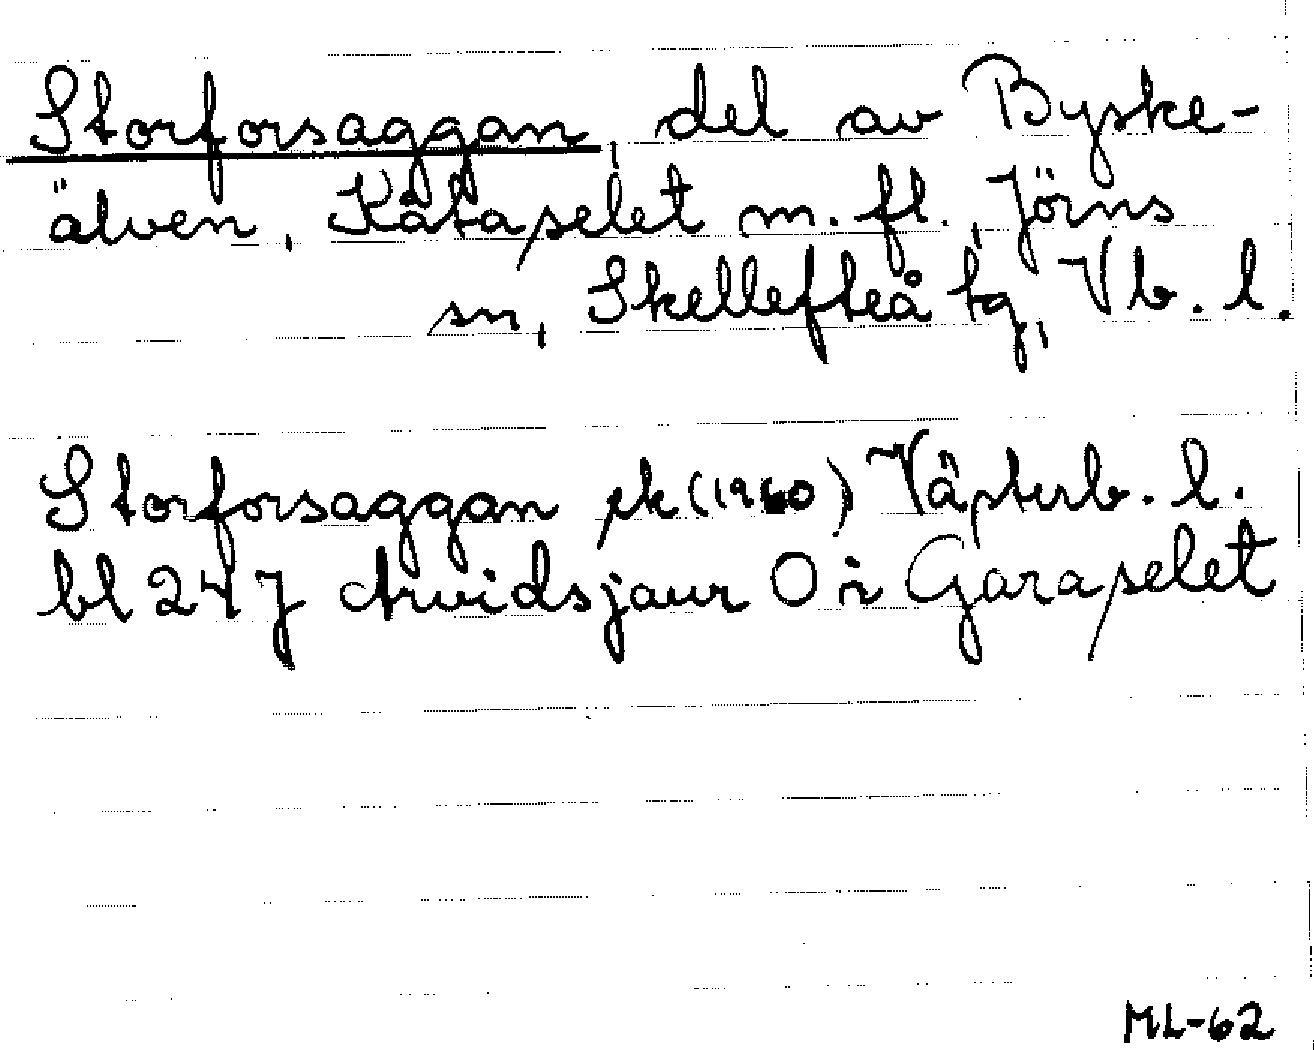 Storforsaggan, del av Byske-
älven, Kåtaselet m.fl., Jörns
sn, Skellefteå tg, Vb. l.
Storforsaggan ek (1960) Västerb. l.
bl 247 Arvidsjaur O i Garaselet
ML-62